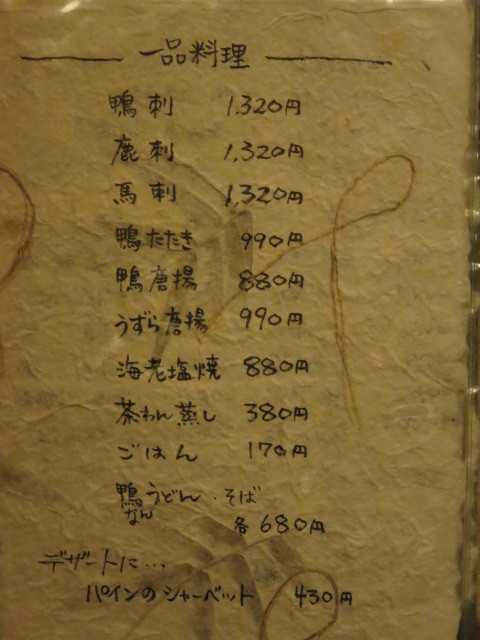 一品料理
鴨刺 1,320円
鹿刺 1,320円
馬刺 1,320円
鴨たたき 990円
鴨唐揚 880円
うずら唐揚 990円
海老塩焼 880円
茶わん蒸し 380円
ごはん 170円
鴨うどん・そば
なん 各680円
デザートに…
パインのシャーベット 430円